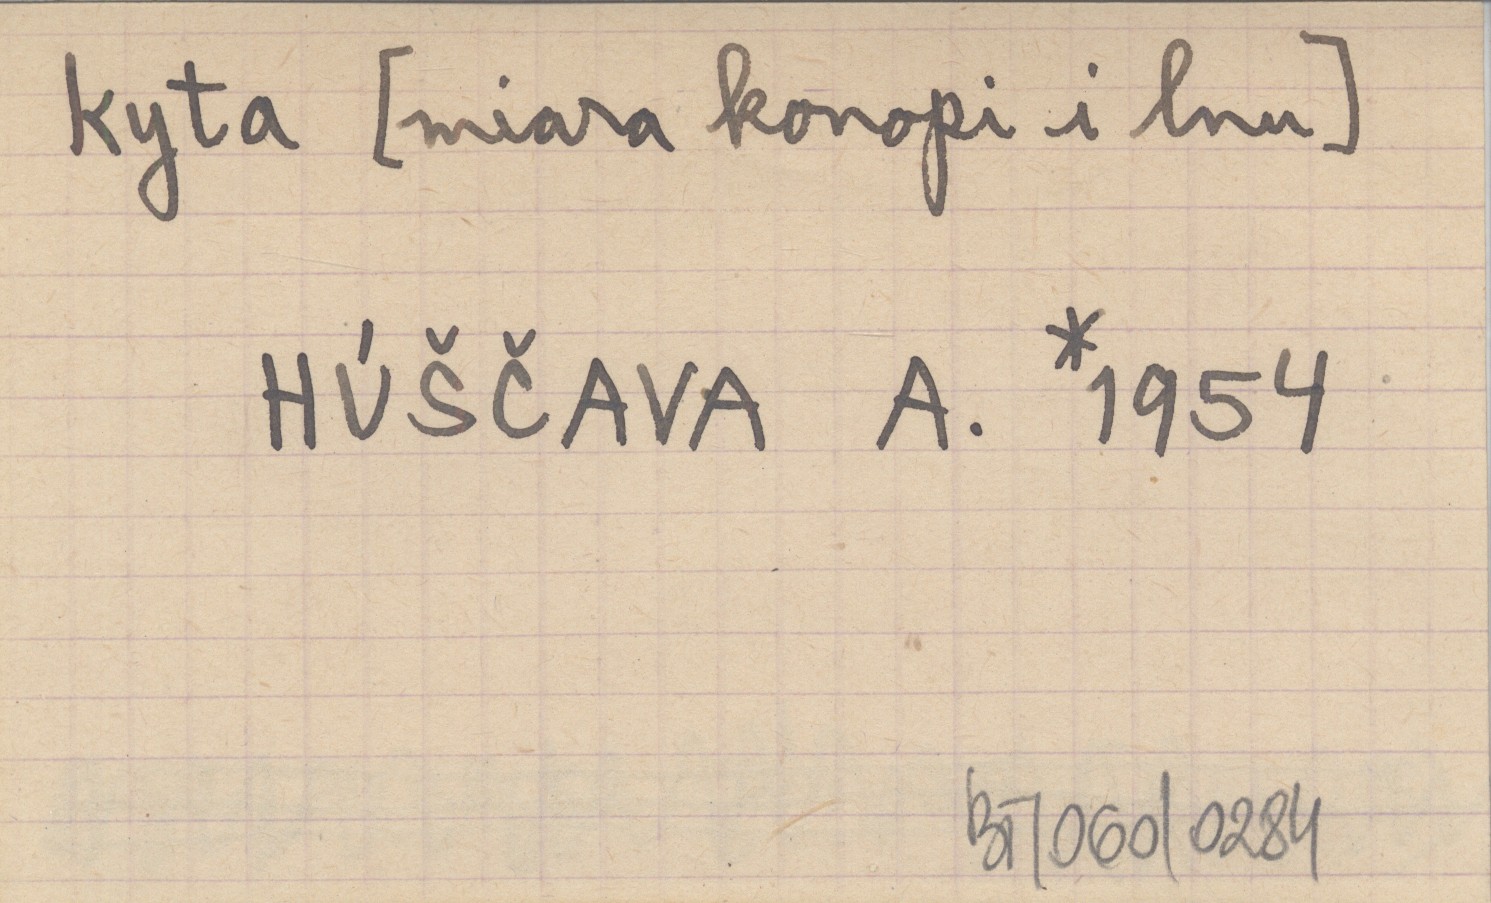 kyta [miara konopi i lnu]
HÚŠČAVA A. *1954
BT/060/0284